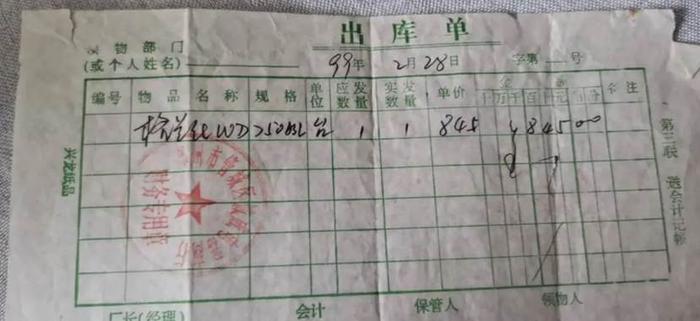 出库单
物部门
(或个人姓名) 99年 2月28日 字第 号
编号 物品名称 规格 单位 应发数量 实发数量 单价 金额 千万千百十元角分 备注
台 1 1 845 ¥84500
财务专用章
兴龙纸品
第三联 送会计记帐
厂长(经理) 会计 保管人 领物人